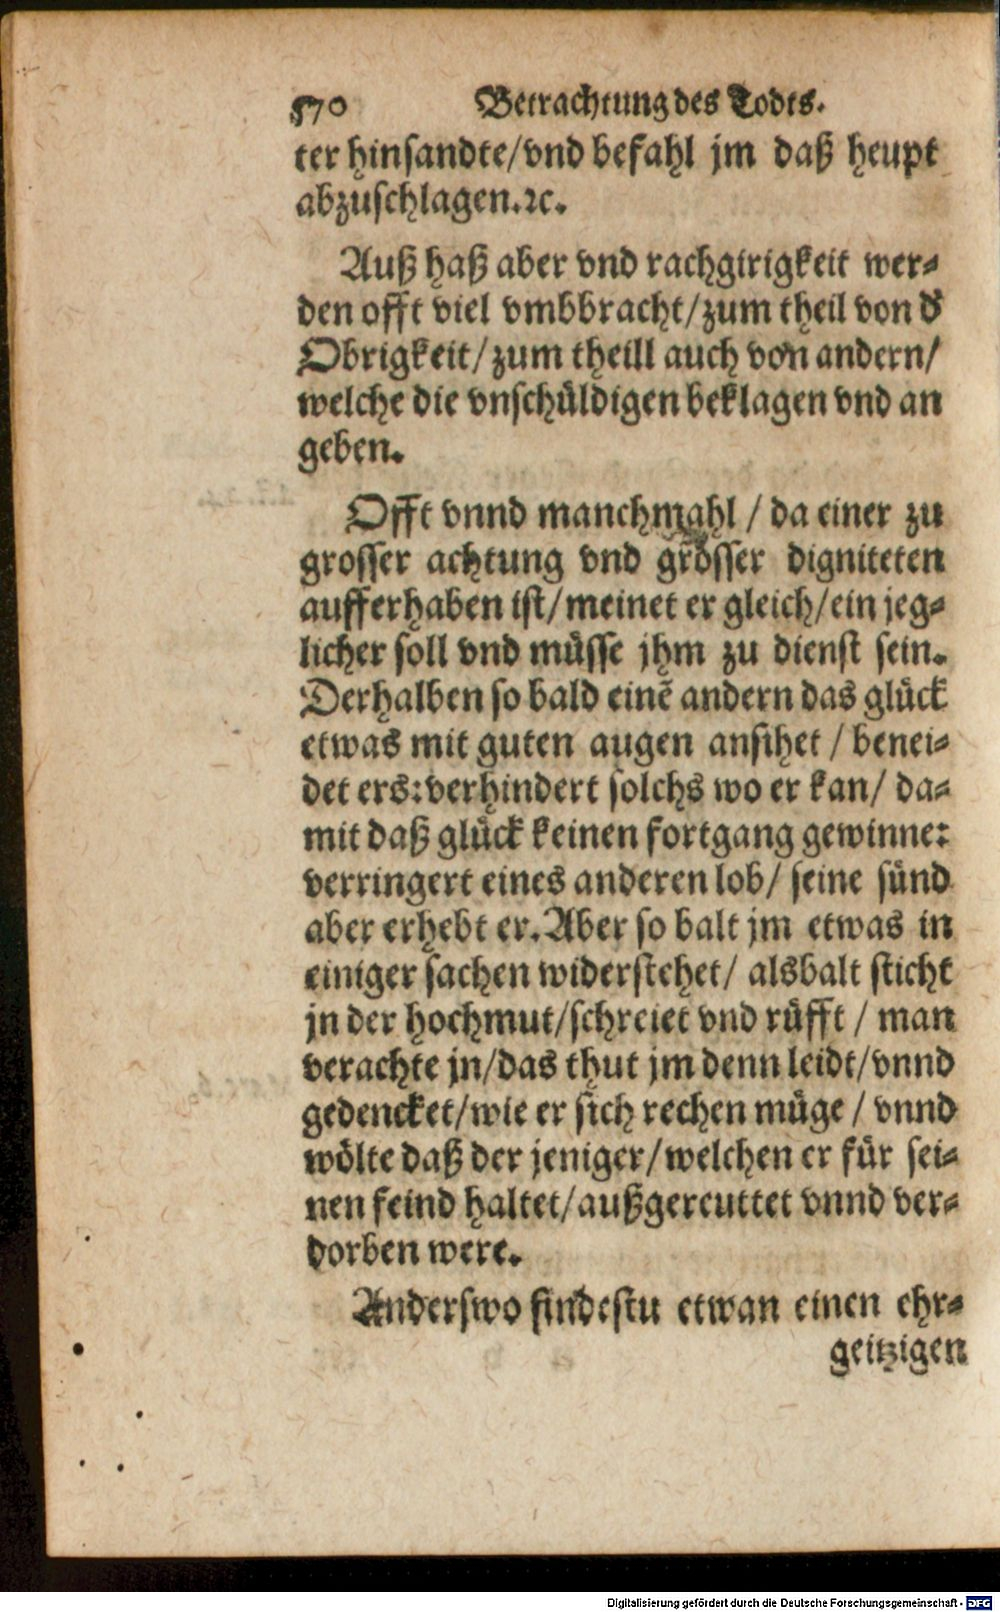 570 Betrachtung des Todts.
ter hinsandte/vnd befahl jm daß heupt
abzuschlagen.ꝛc.
Auß haß aber vnd rachgirigkeit wer⸗
den offt viel vmbbracht/zum theil von d'
Obrigkeit/zum theill auch von andern/
welche die vnschüldigen beklagen vnd an
geben.
Offt vnnd manchmahl / da einer zu
grosser achtung vnd grösser digniteten
aufferhaben ist/meinet er gleich/ein jeg⸗
licher soll vnd müsse jhm zu dienst sein.
Derhalben so bald einẽ andern das glück
etwas mit guten augen ansihet / benei⸗
det ers:verhindert solchs wo er kan/ da⸗
mit daß glück keinen fortgang gewinne:
verringert eines anderen lob/ seine sünd
aber erhebt er.Aber so balt jm etwas in
einiger sachen widerstehet/ alsbalt sticht
jn der hochmut/schreiet vnd rüfft / man
verachte jn/das thut jm denn leidt/vnnd
gedencket/wie er sich rechen müge / vnnd
wölte daß der jeniger/welchen er für sei⸗
nen feind haltet/außgereuttet vnnd ver⸗
dorben were.
Anderswo findestu etwan einen ehr⸗
geitzigen
Digitalisierung gefördert durch die Deutsche Forschungsgemeinschaft - DFG